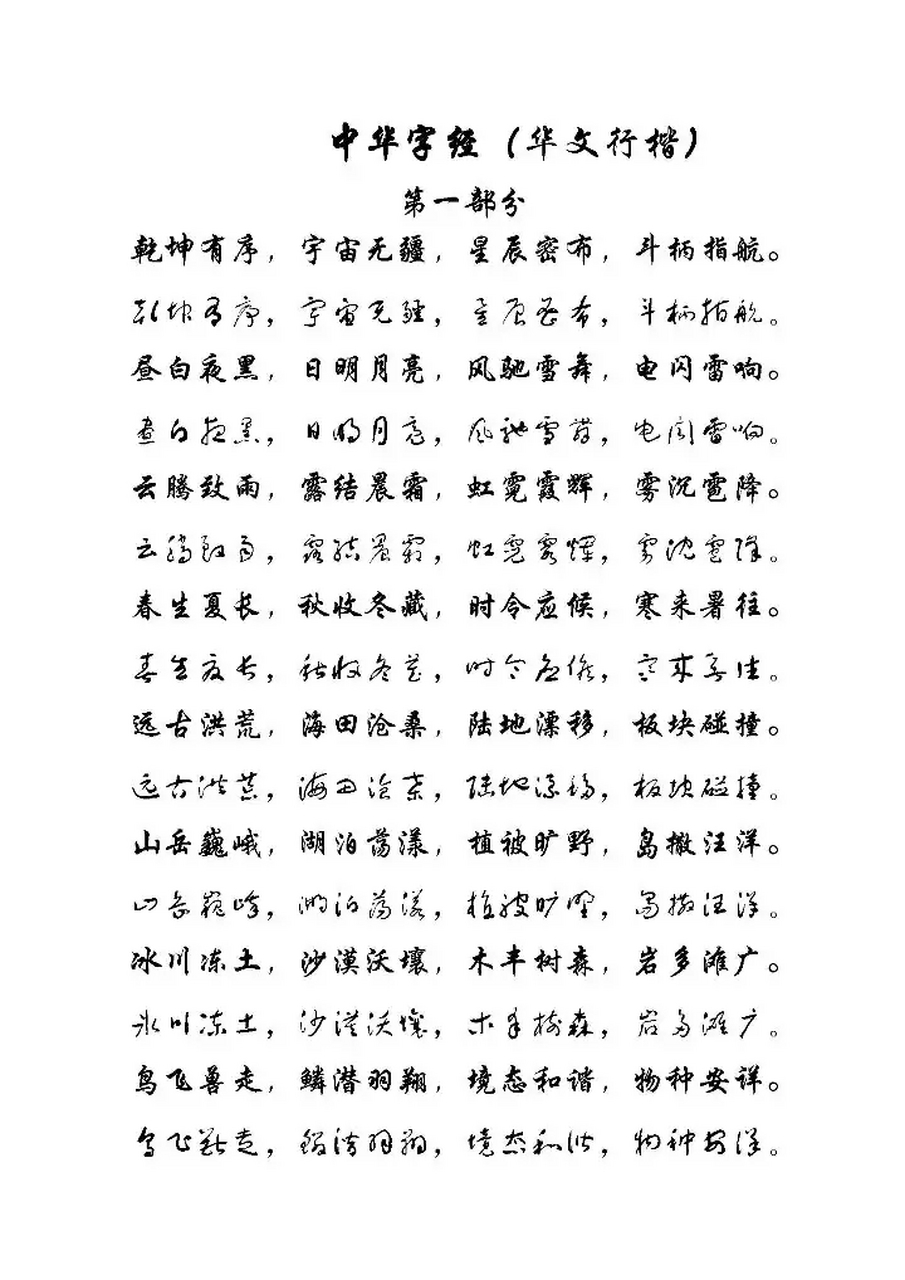 中华字经（华文行楷）
第一部分
乾坤有序，宇宙无疆，星辰密布，斗柄指航。
乾坤有序，宇宙无疆，星辰密布，斗柄指航。
昼白夜黑，日明月亮，风驰雪舞，电闪雷响。
昼白夜黑，日明月亮，风驰雪舞，电闪雷响。
云腾致雨，露结晨霜，虹霓霞辉，雾沉雹降。
云腾致雨，露结晨霜，虹霓霞辉，雾沉雹降。
春生夏长，秋收冬藏，时令应候，寒来暑往。
春生夏长，秋收冬藏，时令应候，寒来暑往。
远古洪荒，海田沧桑，陆地漂移，板块碰撞。
远古洪荒，海田沧桑，陆地漂移，板块碰撞。
山岳巍峨，湖泊荡漾，植被旷野，岛撒汪洋。
山岳巍峨，湖泊荡漾，植被旷野，岛撒汪洋。
冰川冻土，沙漠沃壤，木丰树森，岩多滩广。
冰川冻土，沙漠沃壤，木丰树森，岩多滩广。
鸟飞兽走，鳞潜羽翔，境态和谐，物种安详。
鸟飞兽走，鳞潜羽翔，境态和谐，物种安详。